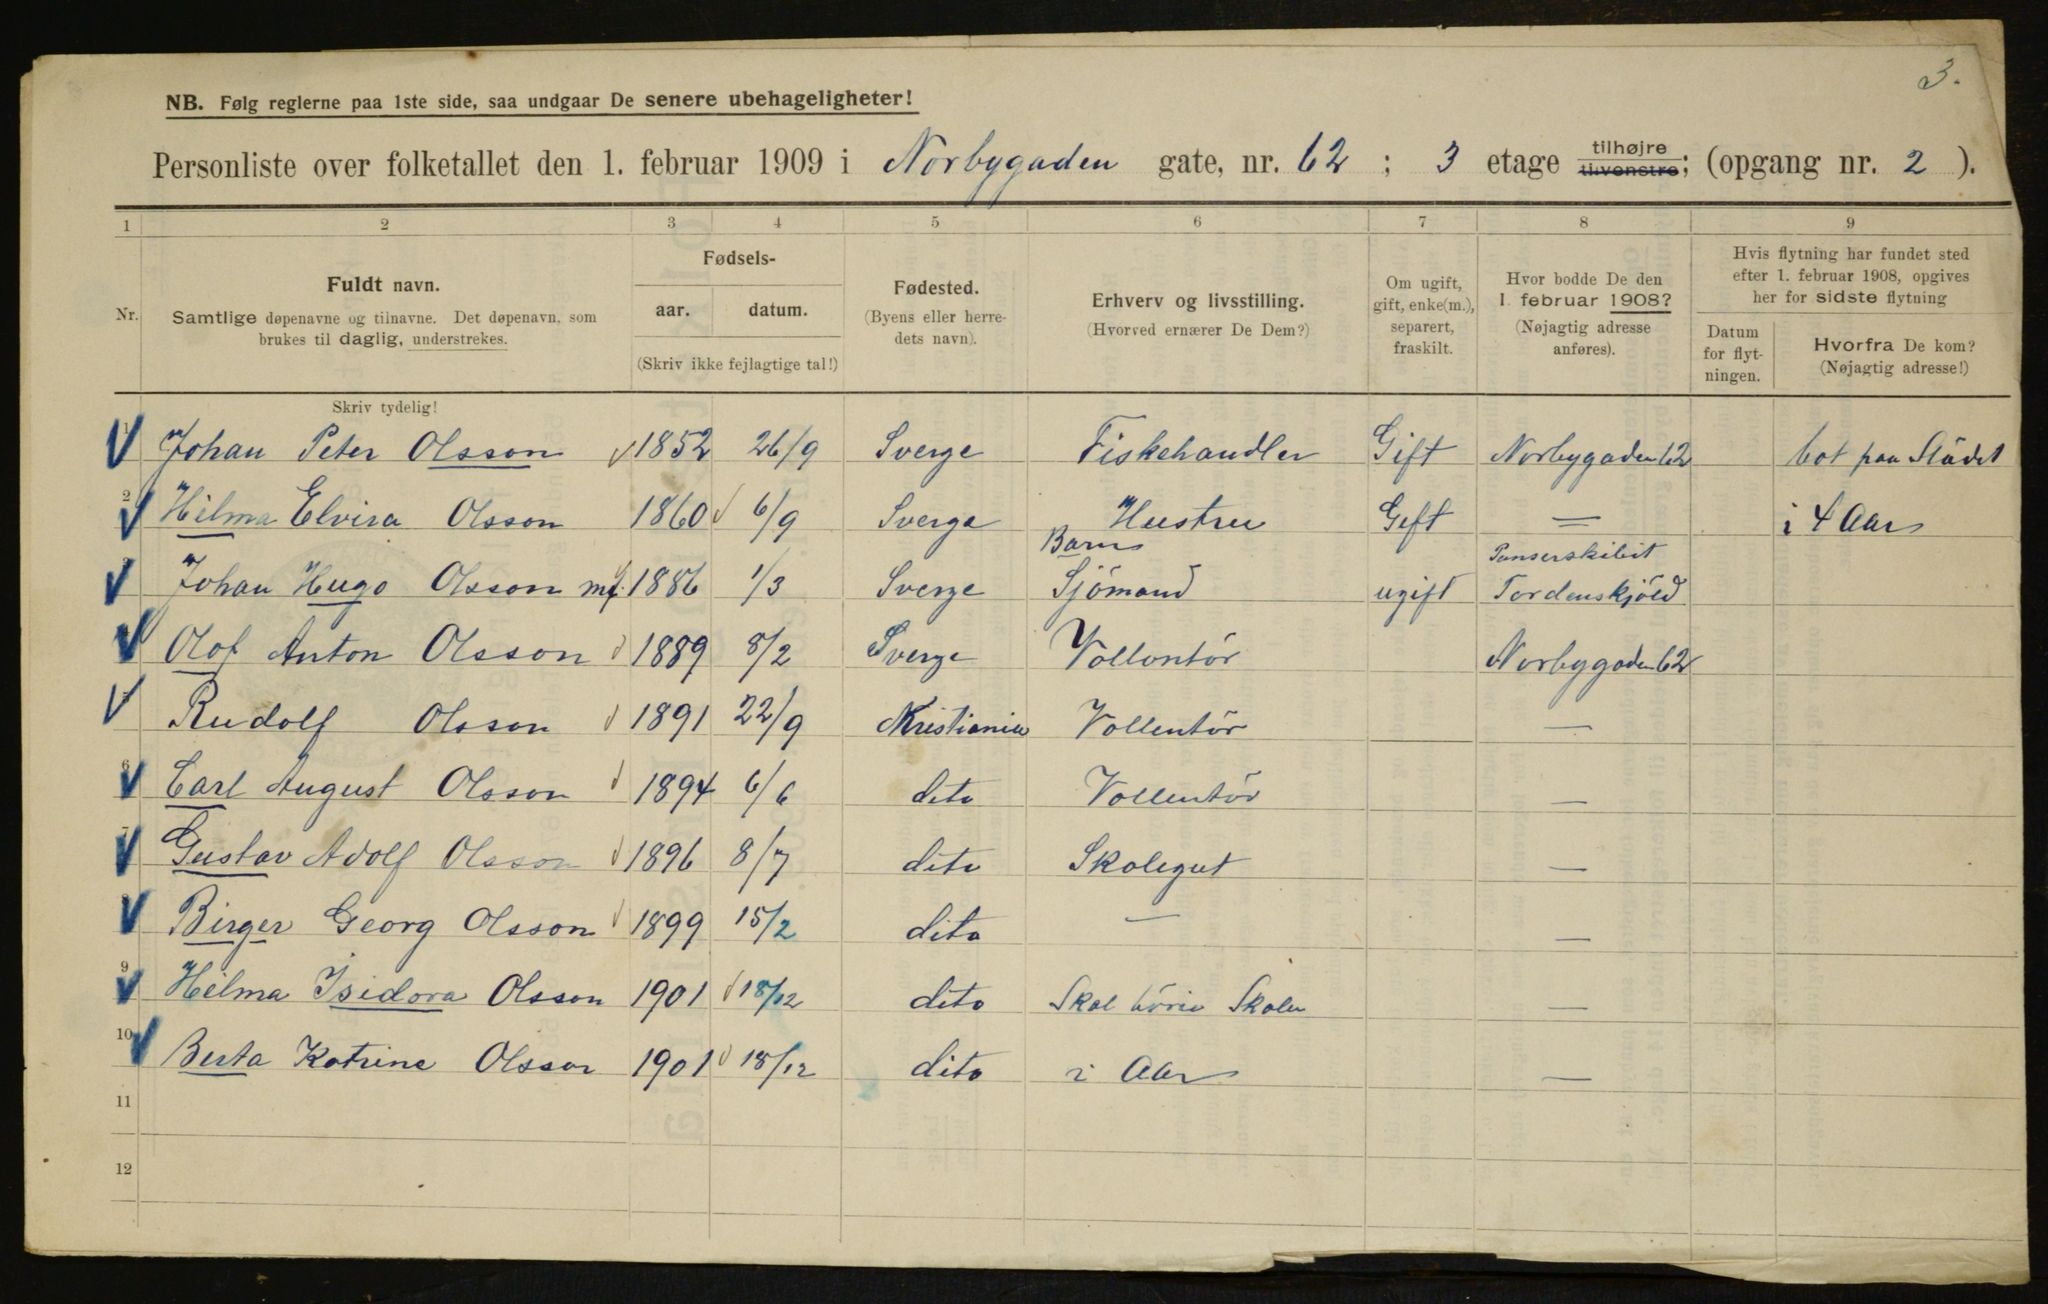 3.
NB. Følg reglerne paa 1ste side, saa undgaar De senere ubehageligheter!
Personliste over folketallet den 1. februar 1909 i Norbygaden gate, nr. 62 ; 3 etage tilhøjre tilvenstre; (opgang nr. 2 ).
1 2 3 4 5 6 7 8 9
Nr.
Fuldt navn.
Samtlige døpenavne og tilnavne. Det døpenavn, som
brukes til daglig, understrekes.
Fødsels-
aar. datum.
(Skriv ikke fejlagtige tal!)
Fødested.
(Byens eller herre-
dets navn).
Erhverv og livsstilling.
(Hvorved ernærer De Dem?)
Om ugift,
gift, enke(m.),
separert,
fraskilt.
Hvor bodde De den
1. februar 1908?
(Nøjagtig adresse
anføres).
Hvis flytning har fundet sted
efter 1. februar 1908, opgives
her for sidste flytning
Datum
for flyt-
ningen.
Hvorfra De kom?
(Nøjagtig adresse!)
Skriv tydelig!
1 Johan Peter Olsson 1852 26/9 Sverge Fiskehandler Gift Norbygaden 62 bot paa Städet
2 Hilma Elvira Olsson 1860 6/9 Sverge Hustru Gift = i 4 Aar
Barn Panserskibet
Johan Hugo Olsson 1886 1/3 Sverge Sjömand ugift Tordenskjöld
Olof Anton Olsson 1889 8/2 Sverge Vollontör Norbygaden 62
Rudolf Olsson 1891 22/9 Kristiania Vollentör —
6 Carl August Olsson 1894 6/6 dito Vollentör —
7 Gustav Adolf Olsson 1896 8/7 dito Skolegut —
Birger Georg Olsson 1899 15/2 dito — —
9 Hilma Isidora Olsson 1901 18/12 dito Skal börie Skolen —
10 Berta Katrine Olsson 1901 18/12 dito i Aar —
11
12